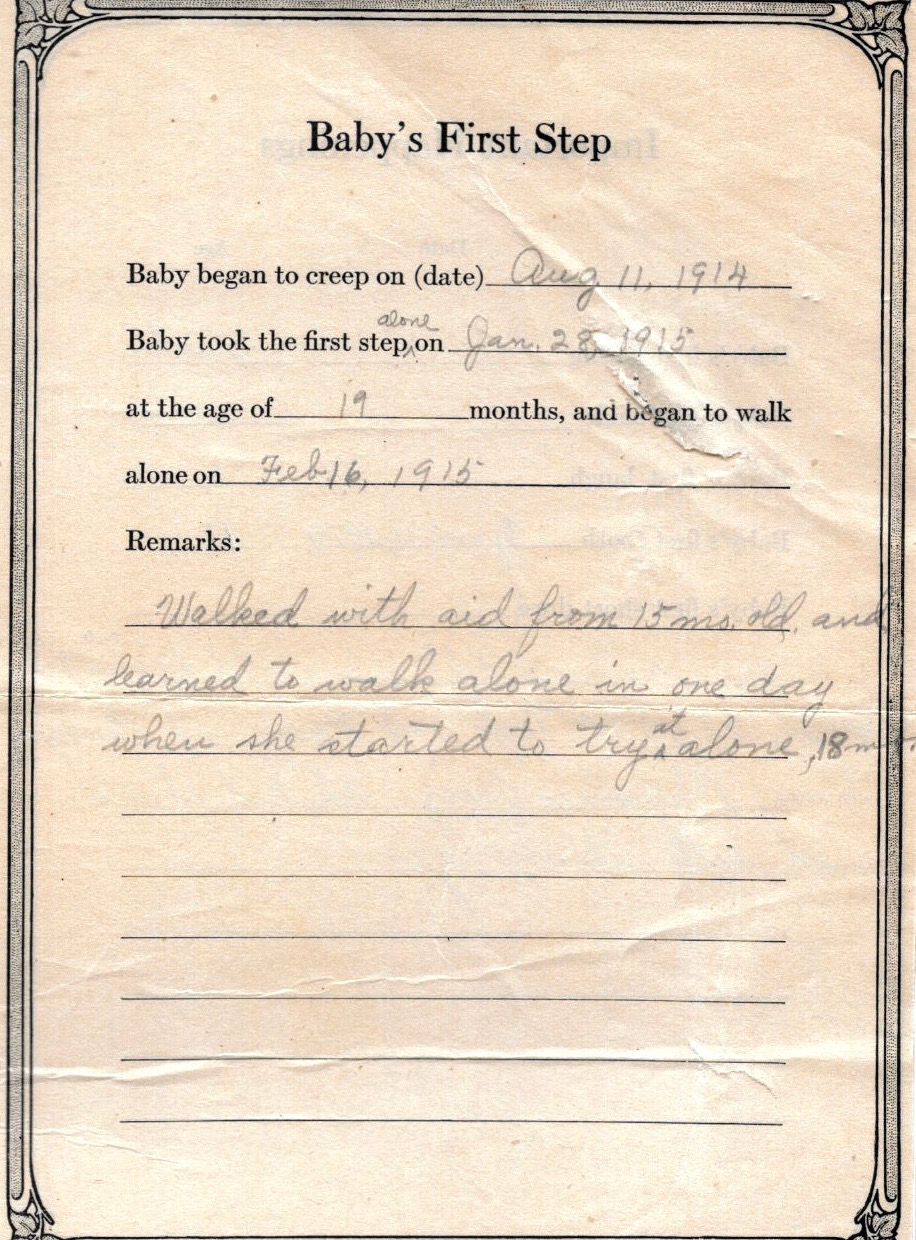 Baby's First Step
Baby began to creep on (date) Aug 11, 1914
Baby took the first step alone on Jan. 28, 1915
at the age of 19 months, and began to walk
alone on Feb 16, 1915
Remarks:
Walked with aid from 15 mo. old, and
learned to walk alone in one day
when she started to try at alone, 18 mo.